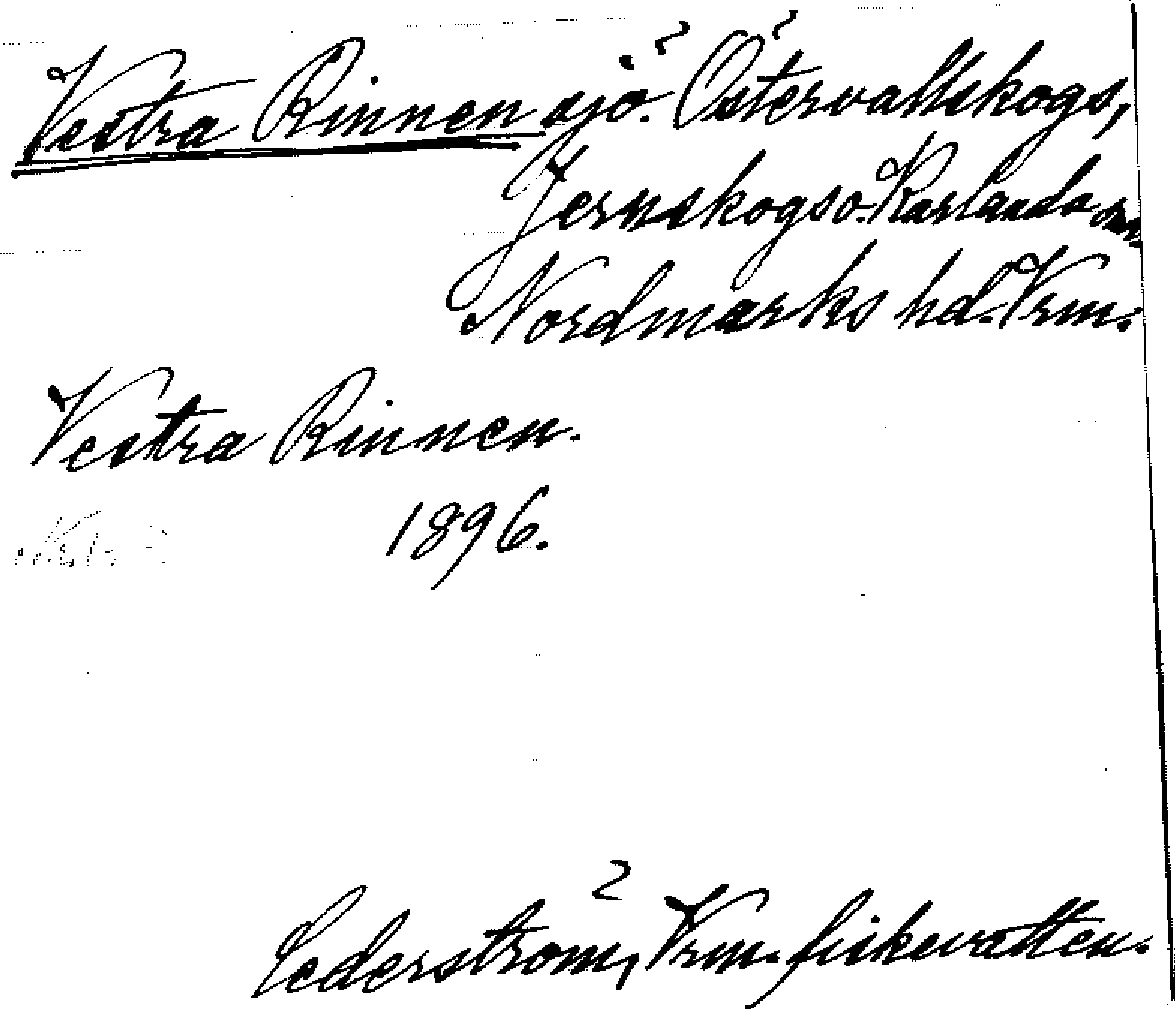 Vestra Rinnen sjö. Östervallskogs,
Jernskogs o. Karlanda snr
Nordmarks hd. Vrm.
Vestra Rinnen.
1896.
Cederström, Vrm. fiskevatten.